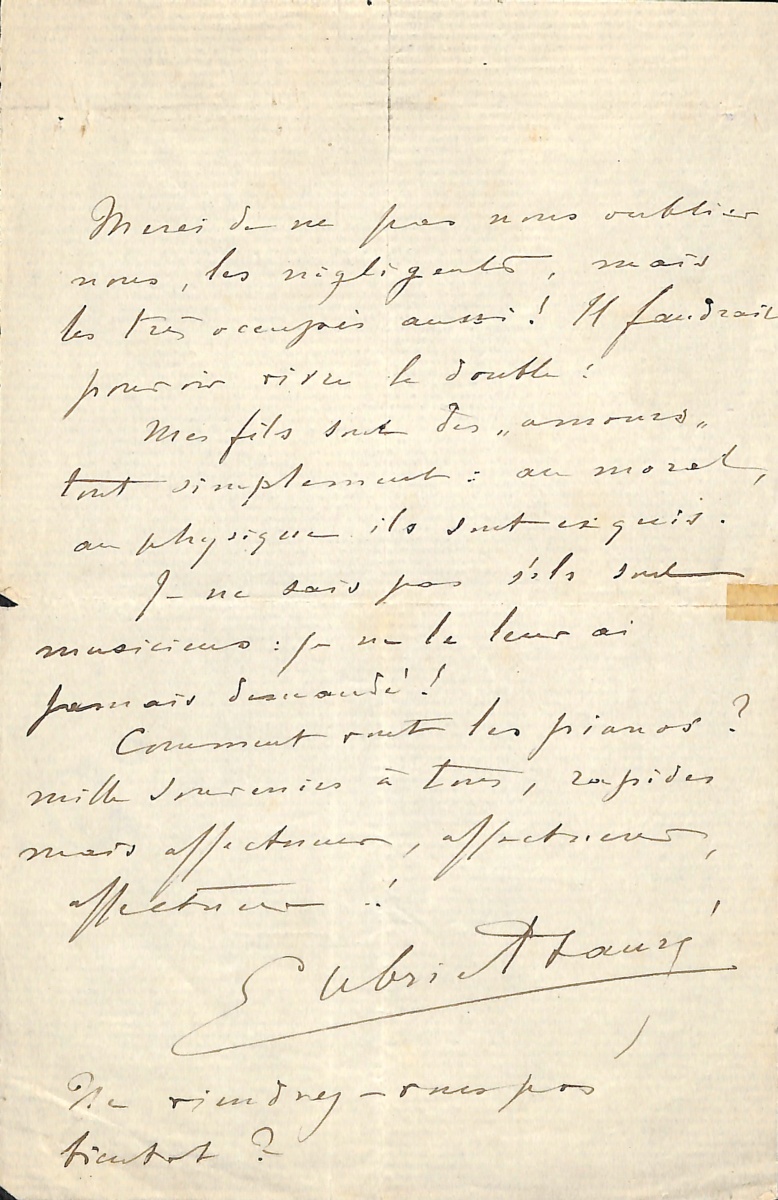 Merci de ne pas nous oublier
nous, les négligents, mais
les très occupés aussi! Il faudrait
pouvoir vivre le double!
Mes fils sont des „amours„
tout simplement: au moral,
au physique ils sont exquis.
Je ne sais pas s'ils sont
musiciens: je ne le leur ai
jamais demandé!
Comment vont les pianos?
mille souvenirs à tous, rapides
mais affectueux, affectueux,
affectueux!
Gabriel Fauré
Ne viendrez-vous pas
bientot?